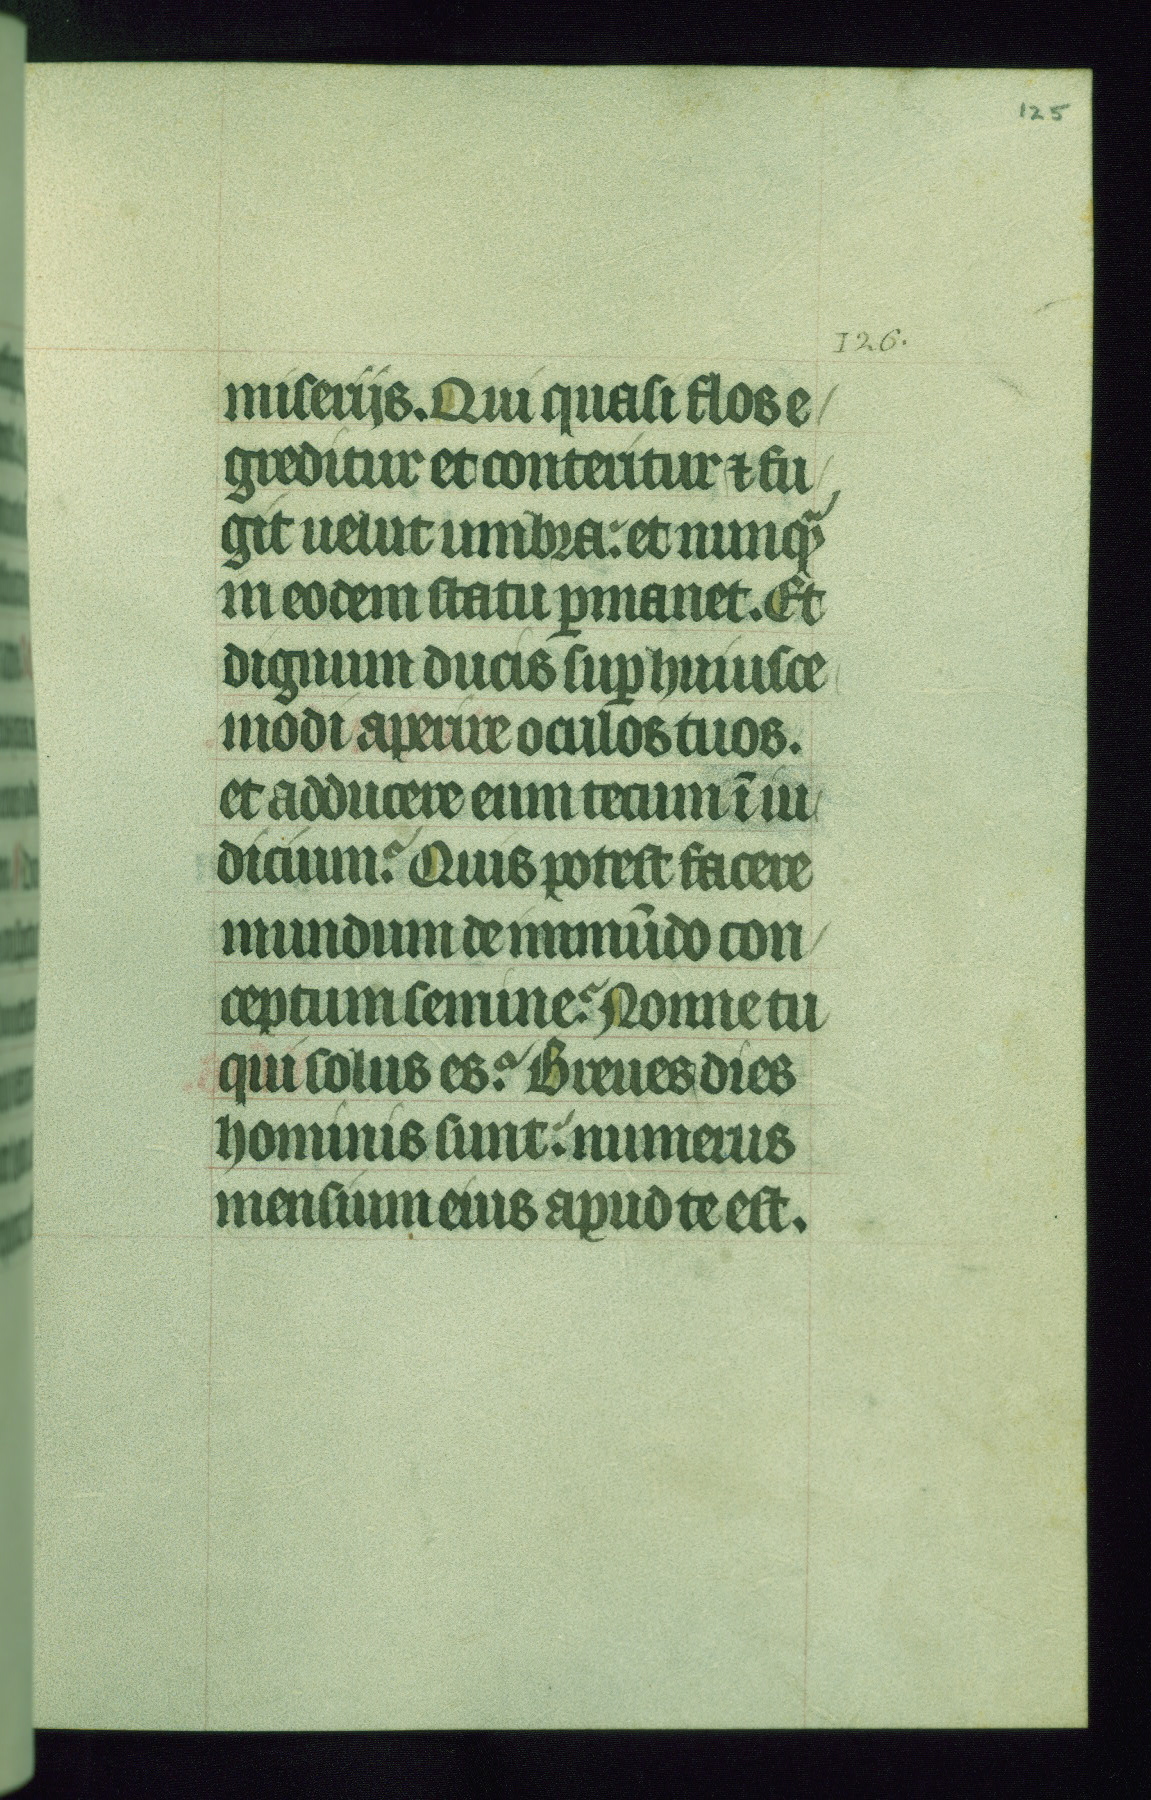 125
126.
miserijs. Qui quasi flos e/
greditur et conteritur ⁊ fu/
git uelut umbra: et nunqᷓ
in eodem statu ꝑmanet. Et
dignum ducis suꝑ huiusce
modi aperire oculos tuos.
et adducere eum tecum ī iu/
dicium? Quis potest facere
mundum de inmūdo con/
ceptum semine? Nonne tu
qui solus es? Breues dies
hominis sunt: numerus
mensium eius apud te est.